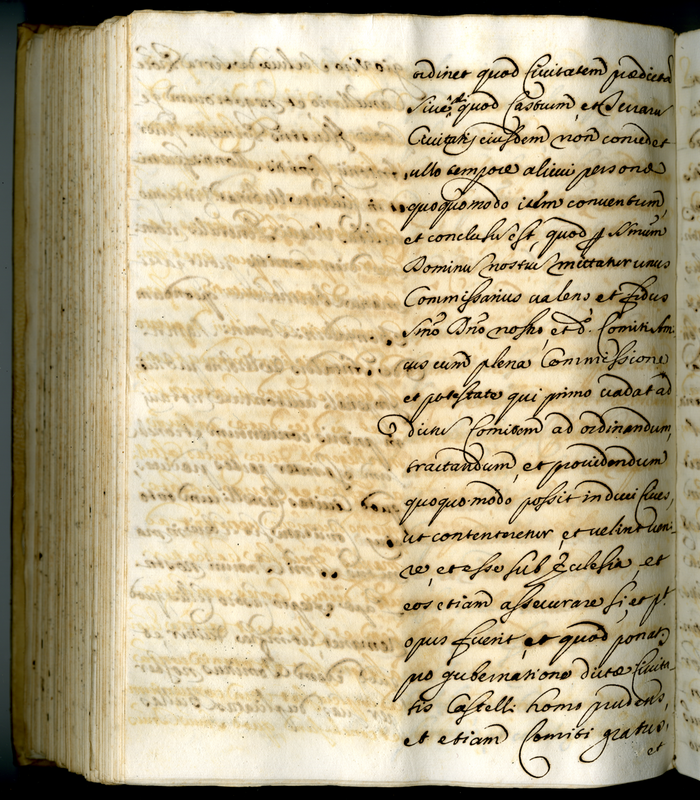 ordinet quod Civitatem prædictā
sive quod Castrum, et Terram
Civitatis eiusdem non concedet
ullo tempore alicui personæ
quoquomodo item conventum
et conclusū est, quod p SSmum
Dominū nostrū mittatur unus
Commissarius valens et fidus
Smo Dno nostro et d. Comiti Am
cus cum plena Commissione
et potestate qui primo vadat ad
dictū Comitem ad ordinandum,
tractandum, et providendum
quoquo modo possit induci Cives,
ut contententur, et velint veni-
re, et esse sub Ecclesia, et
eos etiam assecurare si, et pt.
opus fuerit et quod ponat.
po gubernatione dictæ Civita-
tis Castelli homo prudens,
et etiam Comiti gratus,
et